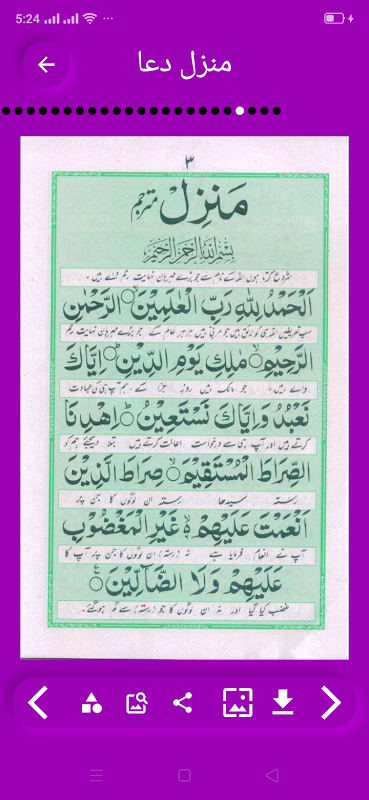 5:24
منزل دعا
۳
مَنزِلْ مترجم
بِسْمِ اللهِ الرَّحْمٰنِ الرَّحِيْمِ
شروع کرتا ہوں اللہ کے نام سے جو بڑے مہربان نہایت رحم والے ہیں ۔
اَلْحَمْدُ لِلّٰهِ رَبِّ الْعٰلَمِيْنَ ۙ الرَّحْمٰنِ
سب تعریفیں اللہ کو لائق ہیں جو مربی ہیں ہر ہر عالم کے جو بڑے مہربان نہایت رحم
الرَّحِيْمِ ۙ مٰلِكِ يَوْمِ الدِّيْنِ ؕ اِيَّاكَ
والے ہیں ۔ جو مالک ہیں روز جزا کے ۔ ہم آپ ہی کی عبادت
نَعْبُدُ وَاِيَّاكَ نَسْتَعِيْنُ ؕ اِهْدِنَا
کرتے ہیں اور آپ ہی سے درخواست اعانت کرتے ہیں بتلا دیجئے ہم کو
الصِّرَاطَ الْمُسْتَقِيْمَ ۙ صِرَاطَ الَّذِيْنَ
رستہ سیدھا رستہ ان لوگوں کا جن پر
اَنْعَمْتَ عَلَيْهِمْ ۙ غَيْرِ الْمَغْضُوْبِ
آپ نے انعام فرمایا ہے نہ (رستہ) ان لوگوں کا جن پر آپ کا
عَلَيْهِمْ وَلَا الضَّآلِّيْنَ ۠
غضب کیا گیا اور نہ ان لوگوں کا جو (رستہ) سے گم ہو گئے۔